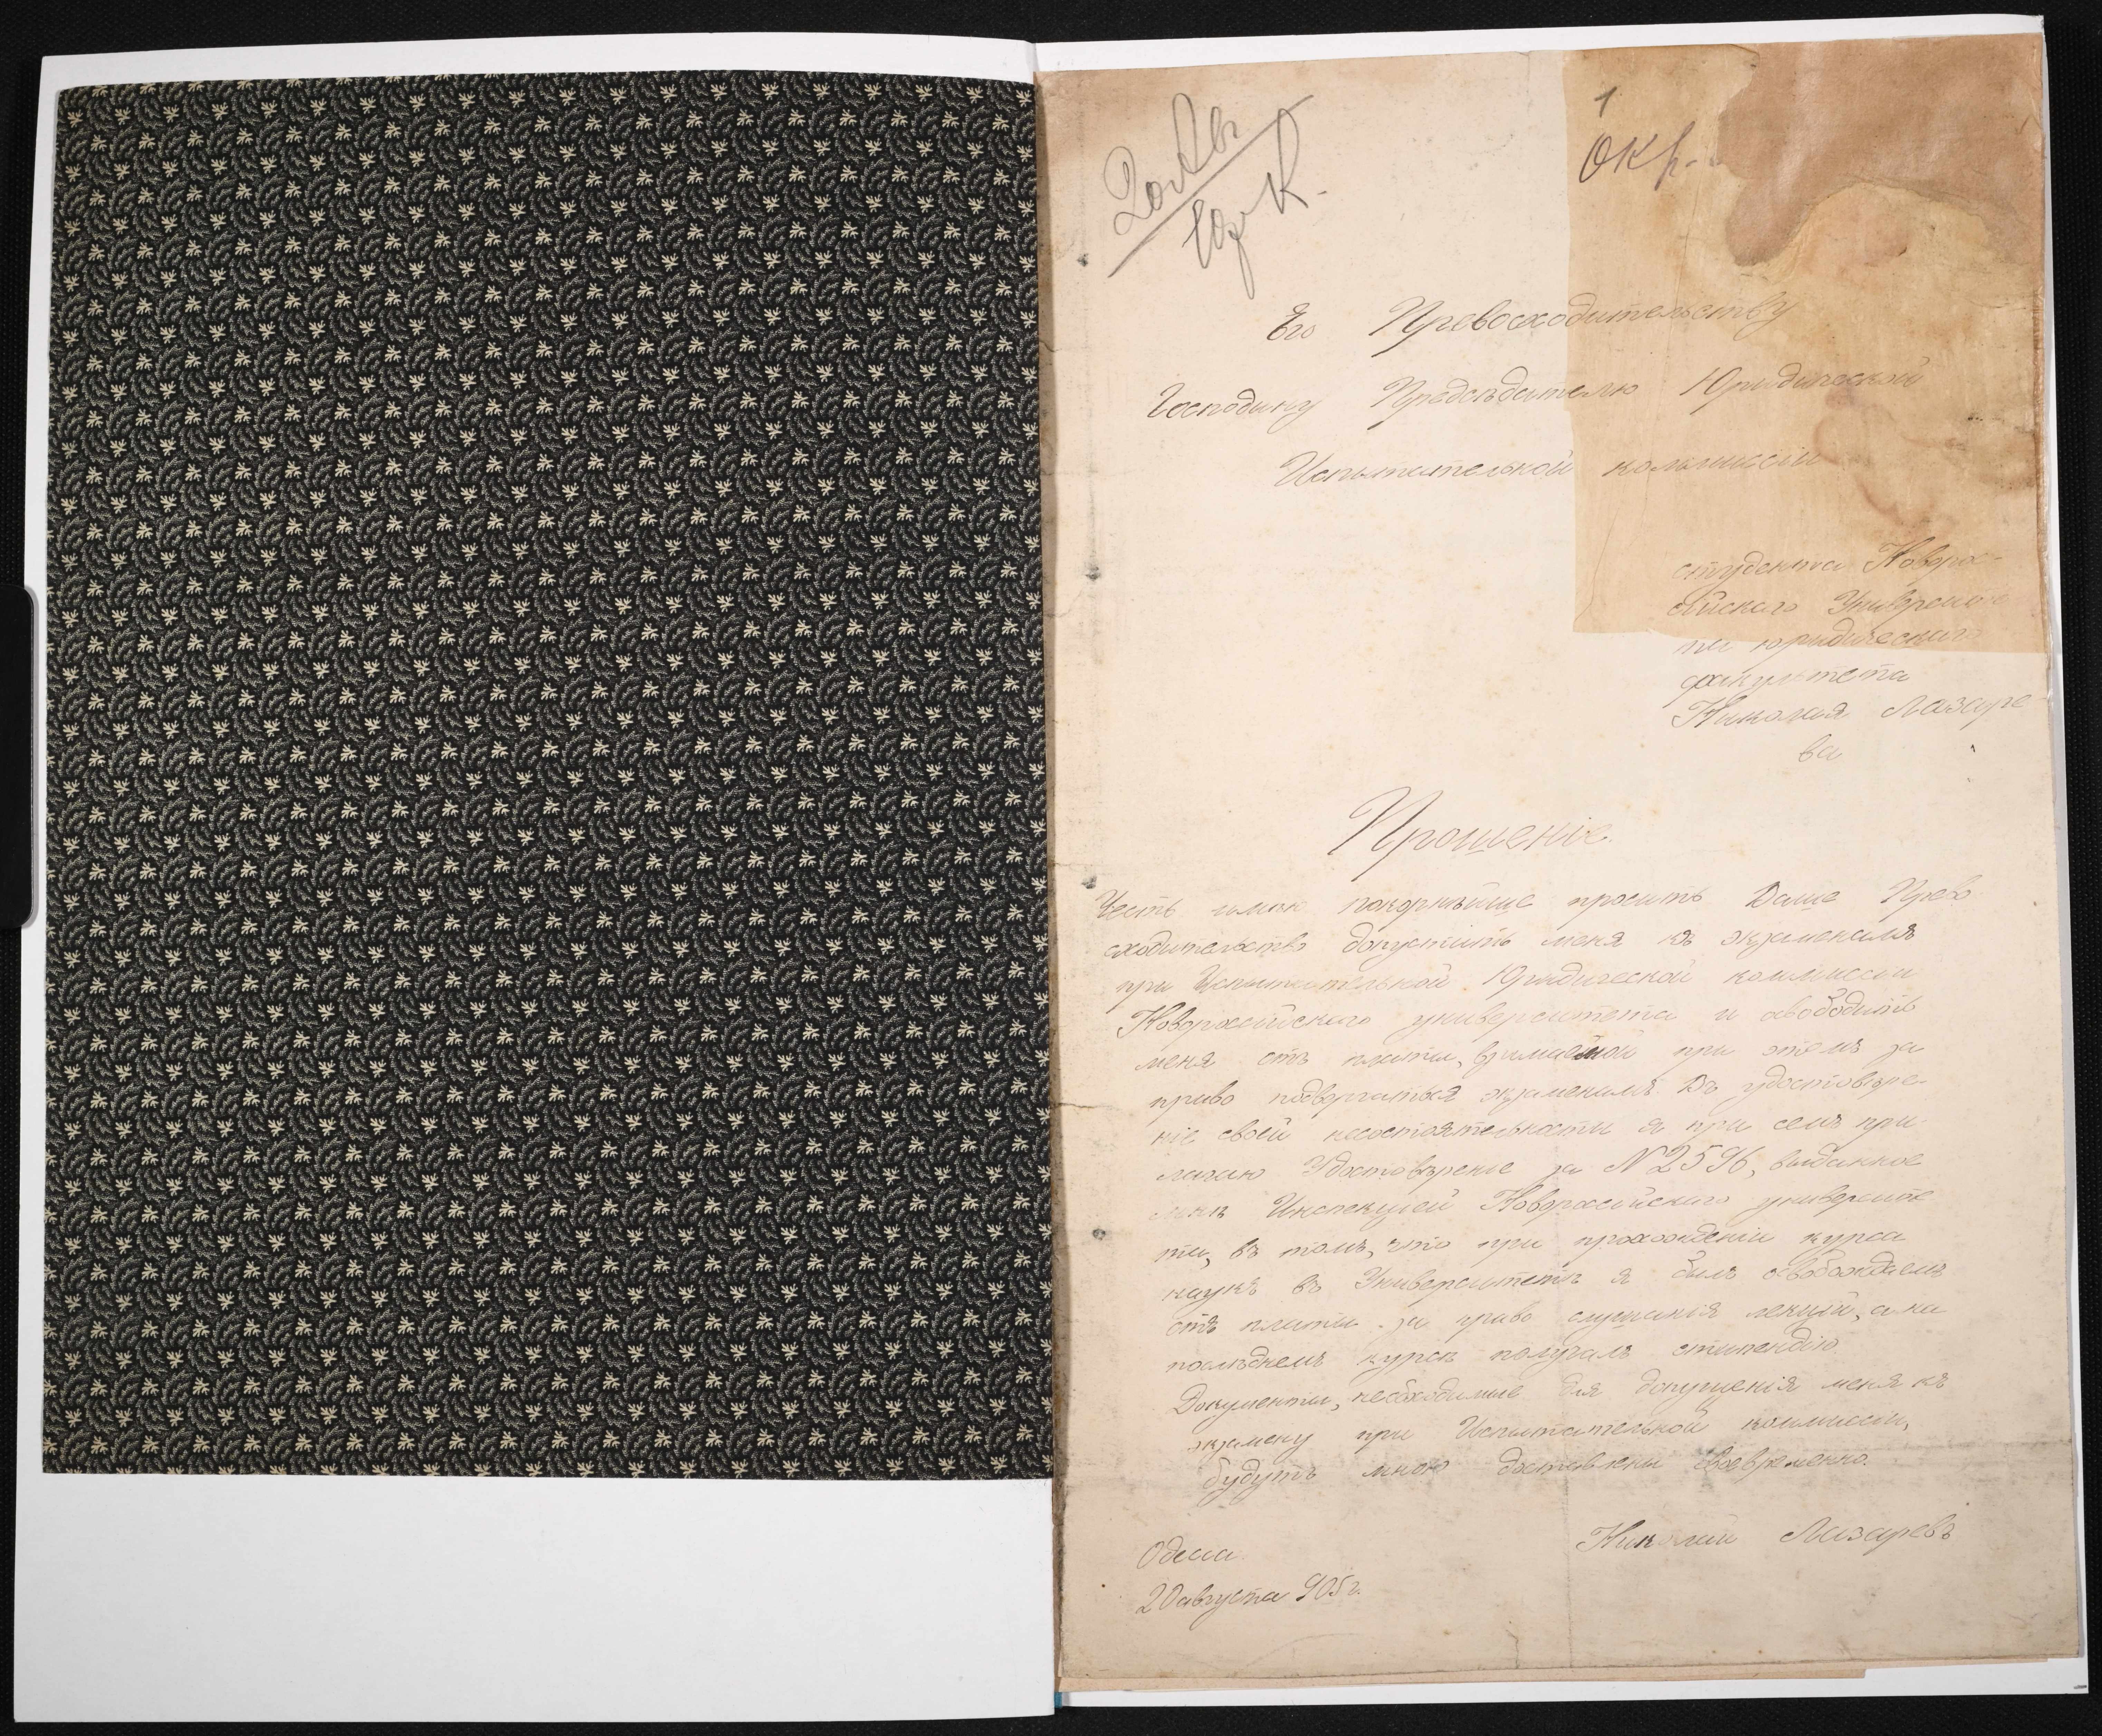 1
окр.
20 Авг
Его Превосходительству
Господину Предсѣдателю Юридической
Испытательной коммиссіи
студента Новорос-
сійскаго Университе
та юридическаго
факультета
Николая Лазаре
ва
Прошеніе.
Честь имѣю покорнѣйше просить Ваше Прево
сходительство допустить меня къ экзаменамъ
при Испытательной Юридической коммиссіи
Новороссійскаго университета и освободить
меня отъ платы, взимаемой при этомъ за
право подвергаться экзаменамъ. Въ удостовѣре-
ніе своей несостоятельности я при семъ при-
лагаю Удостовѣреніе за № 2596, выданное
мнѣ Инспекціей Новороссійскаго университе
та, въ томъ, что при прохожденіи курса
наукъ въ Университетѣ я былъ освобождаемъ
отъ платы за право слушанія лекцій, а на
послѣднемъ курсѣ получалъ стипендію.
Документы, необходимые для допущенія меня къ
экзамену при Испытательной коммиссіи,
будутъ мною доставлены своевременно.
Николай Лазаревъ
Одесса.
20 августа 905 г.